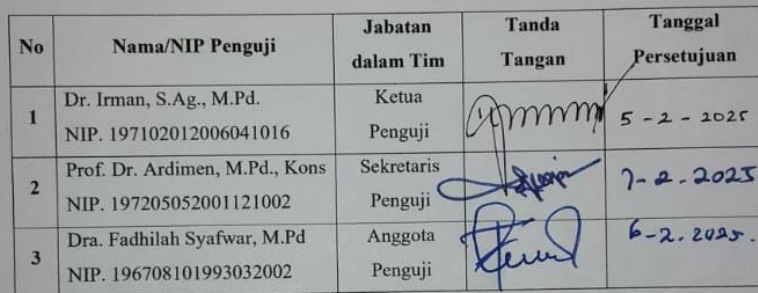 No Nama/NIP Penguji Jabatan dalam Tim Tanda Tangan Tanggal Persetujuan
1 Dr. Irman, S.Ag., M.Pd. Ketua
NIP. 197102012006041016 Penguji 5 - 2 - 2025
2 Prof. Dr. Ardimen, M.Pd., Kons Sekretaris
NIP. 197205052001121002 Penguji 7 - 2 - 2025
3 Dra. Fadhilah Syafwar, M.Pd Anggota
NIP. 196708101993032002 Penguji 6 - 2. 2025.